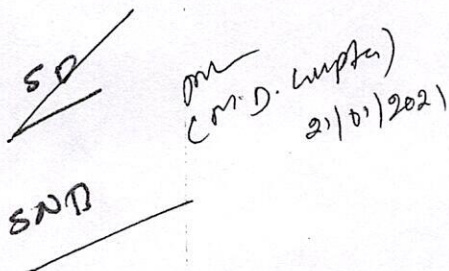 SD
(M.D. Gupta)
21/01/2021
SNB